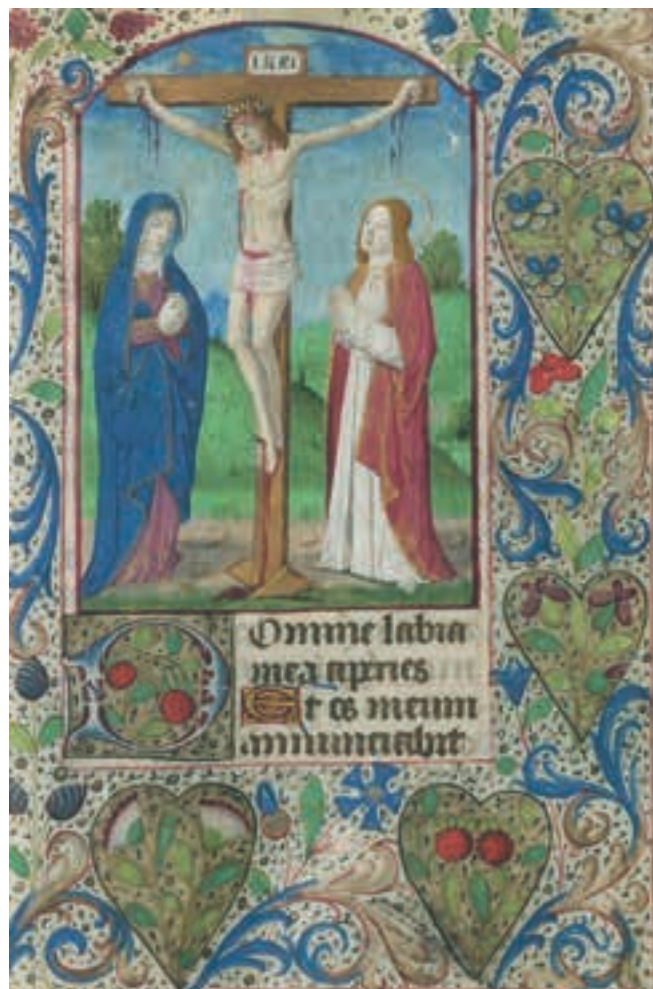 INRI
Domine labia
mea aperies
Et os meum
annunciabit